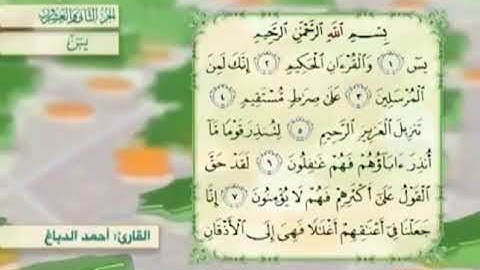 الجزء الثاني والعشرون
يسٓ
بِسْمِ اللَّهِ الرَّحْمَٰنِ الرَّحِيمِ
يسٓ ۝١ وَالْقُرْءَانِ الْحَكِيمِ ۝٢ إِنَّكَ لَمِنَ
الْمُرْسَلِينَ ۝٣ عَلَىٰ صِرَاطٍ مُّسْتَقِيمٍ ۝٤
تَنزِيلَ الْعَزِيزِ الرَّحِيمِ ۝٥ لِتُنذِرَ قَوْمًا مَّا
أُنذِرَ ءَابَاؤُهُمْ فَهُمْ غَٰفِلُونَ ۝٦ لَقَدْ حَقَّ
الْقَوْلُ عَلَىٰ أَكْثَرِهِمْ فَهُمْ لَا يُؤْمِنُونَ ۝٧ إِنَّا
جَعَلْنَا فِي أَعْنَٰقِهِمْ أَغْلَٰلًا فَهِيَ إِلَى الْأَذْقَانِ
القارئ: أحمد الدباغ